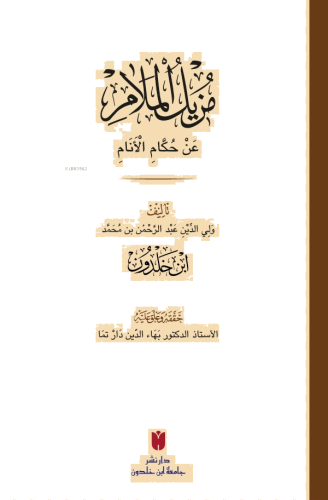 مُزِيلُ الْمَلَامِ
عَنْ حُكَّامِ الْأَنَامِ
تَأْلِيفُ
وَلِي الدِّيْنِ عَبْدِ الرَّحْمٰنِ بن مُحَمَّد
ابْنِ خَلْدُونْ
حَقَّقَهُ وَعَلَّقَ عَلَيْهِ
الأستاذ الدكتور بَهَاء الدِّين دَارْ تمَا
دار نشر
جامعة ابن خلدون